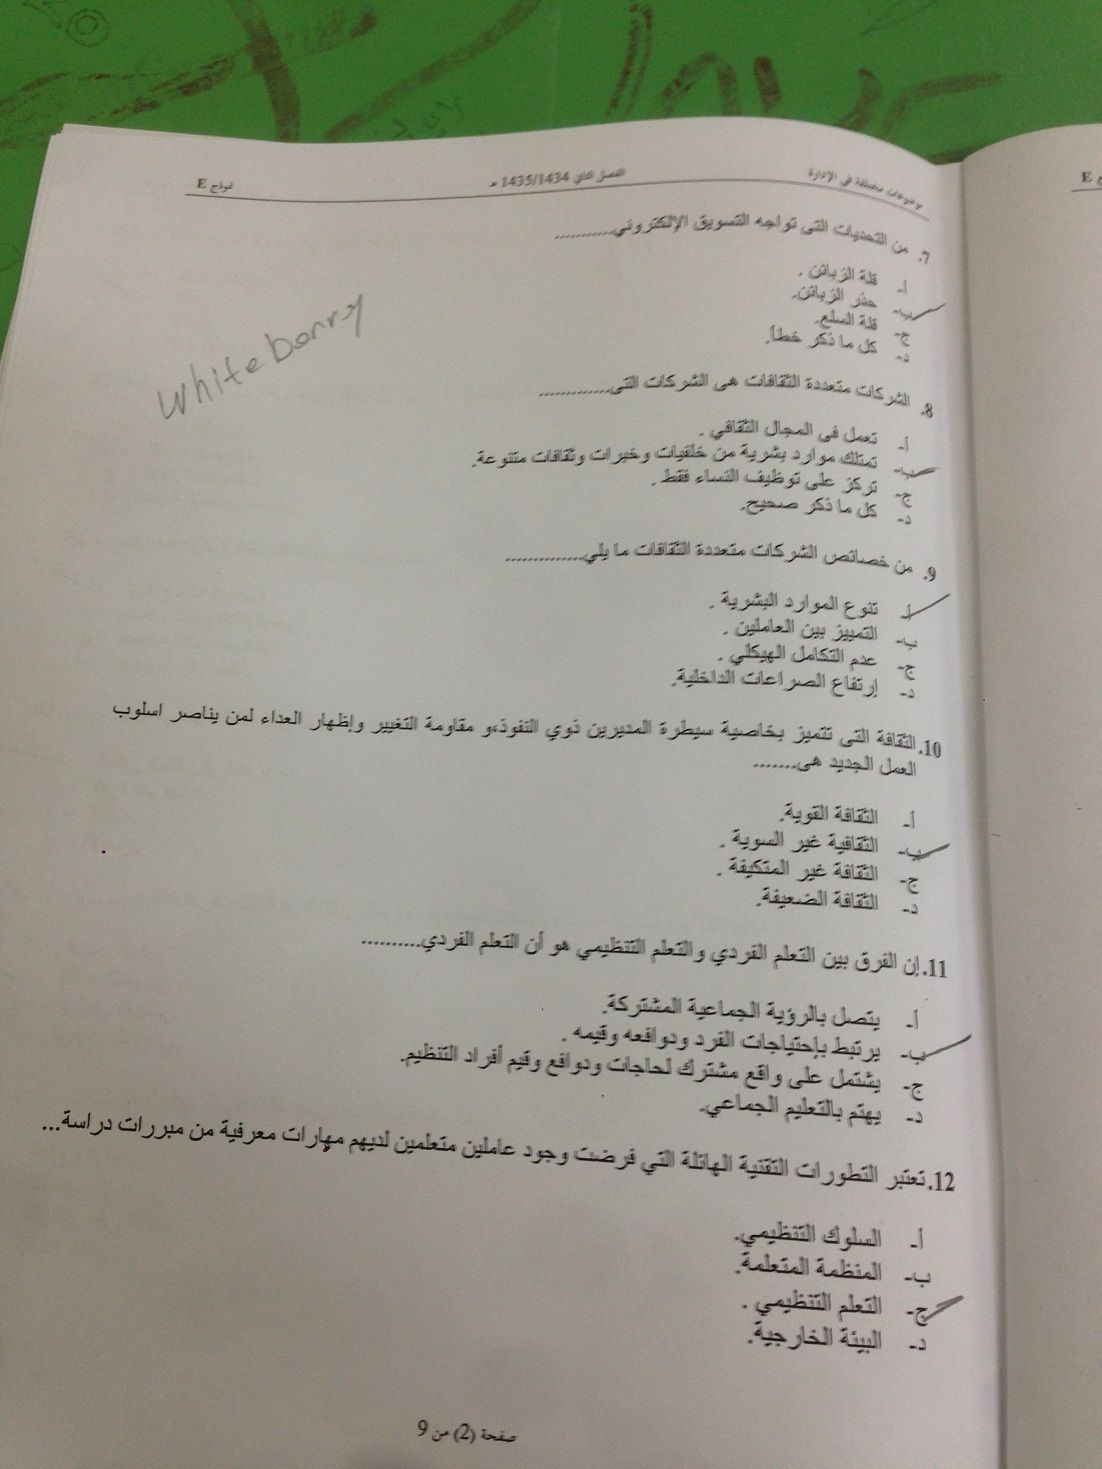 موضوعات مختلفة في الإدارة الفصل الثاني 1435/1434 هـ نموذج E
7. من التحديات التى تواجه التسويق الإلكتروني............
أ- قلة الزبائن .
ب- حذر الزبائن.
ج- قلة السلع.
د- كل ما ذكر خطأ.
whiteberry
8. الشركات متعددة الثقافات هى الشركات التى.............
أ- تعمل فى المجال الثقافي .
ب- تمتلك موارد بشرية من خلفيات وخبرات وثقافات متنوعة.
ج- تركز على توظيف النساء فقط .
د- كل ما ذكر صحيح.
9. من خصائص الشركات متعددة الثقافات ما يلي..............
أ- تنوع الموارد البشرية .
ب- التمييز بين العاملين .
ج- عدم التكامل الهيكلي .
د- إرتفاع الصراعات الداخلية.
10. الثقافة التى تتميز بخاصية سيطرة المديرين ذوي النفوذ،و مقاومة التغيير وإظهار العداء لمن يناصر اسلوب
العمل الجديد هى.......
أ- الثقافة القوية.
ب- الثقافية غير السوية .
ج- الثقافة غير المتكيفة .
د- الثقافة الضعيفة.
11. إن الفرق بين التعلم الفردي والتعلم التنظيمي هو أن التعلم الفردي..........
أ- يتصل بالرؤية الجماعية المشتركة.
ب- يرتبط بإحتياجات الفرد ودوافعه وقيمه .
ج- يشتمل على واقع مشترك لحاجات ودوافع وقيم أفراد التنظيم.
د- يهتم بالتعليم الجماعي.
12. تعتبر التطورات التقنية الهائلة التي فرضت وجود عاملين متعلمين لديهم مهارات معرفية من مبررات دراسة...
أ- السلوك التنظيمي.
ب- المنظمة المتعلمة.
ج- التعلم التنظيمي .
د- البيئة الخارجية.
صفحة (2) من 9